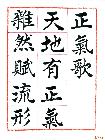 正氣歌
天地有正氣
雜然賦流形